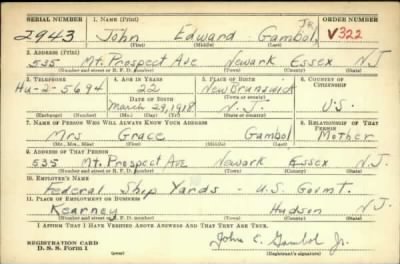 SERIAL NUMBER 1. NAME (Print) ORDER NUMBER
2943 John Edward Gambol, Jr. V322
(First) (Middle) (Last)
2. ADDRESS (Print)
535 Mt. Prospect Ave Newark Essex N.J.
(Number and street or R. F. D. number) (Town) (County) (State)
3. TELEPHONE 4. AGE IN YEARS 5. PLACE OF BIRTH 6. COUNTRY OF CITIZENSHIP
Hu-2-5694 22 New Brunswick
DATE OF BIRTH (Town or county)
March 29, 1918 N.J. U.S.
(Exchange) (Number) (Mo.) (Day) (Yr.) (State or country)
7. NAME OF PERSON WHO WILL ALWAYS KNOW YOUR ADDRESS 8. RELATIONSHIP OF THAT PERSON
Mrs Grace Gambol Mother
(Mr., Mrs., Miss) (First) (Middle) (Last)
9. ADDRESS OF THAT PERSON
535 Mt. Prospect Ave Newark Essex N.J.
(Number and street or R. F. D. number) (Town) (County) (State)
10. EMPLOYER'S NAME
Federal Ship Yards - U.S. Govmt.
11. PLACE OF EMPLOYMENT OR BUSINESS
Kearney Hudson N.J.
(Number and street or R. F. D. number) (Town) (County) (State)
I AFFIRM THAT I HAVE VERIFIED ABOVE ANSWERS AND THAT THEY ARE TRUE.
REGISTRATION CARD
D. S. S. Form 1 John E. Gambol Jr.
(over) (Registrant's signature)